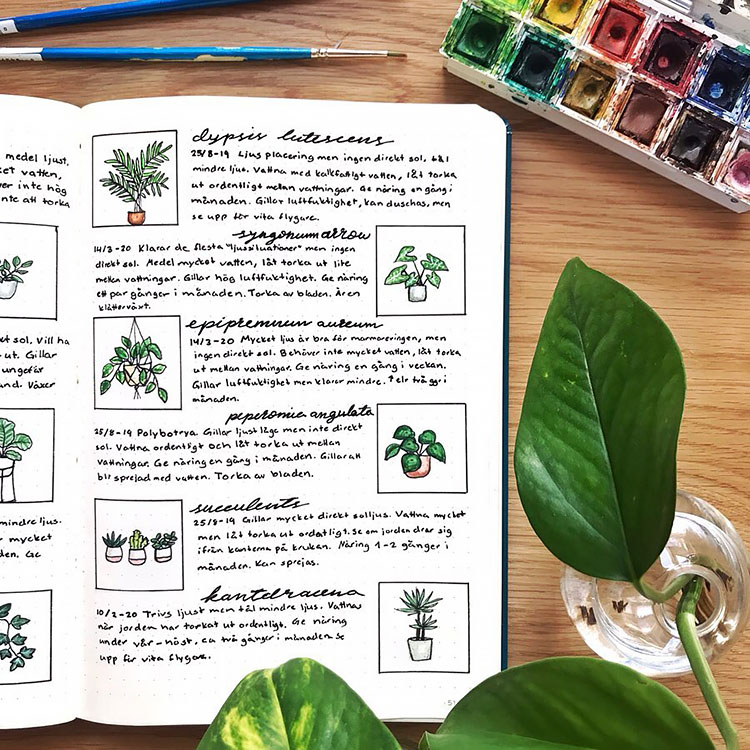 medel ljust,
ket vatten,
er inte hög
inte att torka
sol. Vill ha
ut. Gillar
ungefär
und. Växer
mindre ljus.
r mycket
den. Ge
dypsis lutescens
25/8-19 Ljus placering men ingen direkt sol, tål
mindre ljus. Vattna med kalkfattigt vatten, låt torka
ut ordentligt mellan vattningar. Ge näring en gång i
månaden. Gillar luftfuktighet, kan duschas, men
se upp för vita flygare.
syngonium arrow
14/3-20 Klarar de flesta "ljussituationer" men ingen
direkt sol. Medel mycket vatten, låt torka ut lite
mellan vattningar. Gillar hög luftfuktighet. Ge näring
ett par gånger i månaden. Torka av bladen. Är en
klätterväxt.
epipremnum aureum
14/3-20 Mycket ljus är bra för marmoreringen, men
ingen direkt sol. Behöver inte mycket vatten, låt torka
ut mellan vattningar. Ge näring en gång i veckan.
Gillar luftfuktighet men klarar mindre. 1 elr två ggr i
månaden.
peperomia angulata
25/8-19 Polybotrya. Gillar ljust läge men inte direkt
sol. Vattna ordentligt och låt torka ut mellan
vattningar. Ge näring en gång i månaden. Gillar att
bli sprejad med vatten. Torka av bladen.
succulents
25/8-19 Gillar mycket direkt solljus. Vattna mycket
men låt torka ut ordentligt. Se om jorden drar sig
ifrån kanterna på krukan. Näring 1-2 gånger i
månaden. Kan sprejas.
kantdracena
10/2-20 Trivs ljust men tål mindre ljus. Vattna
när jorden har torkat ut ordentligt. Ge näring
under vår-höst, ca två gånger i månaden. Se
upp för vita flygare.